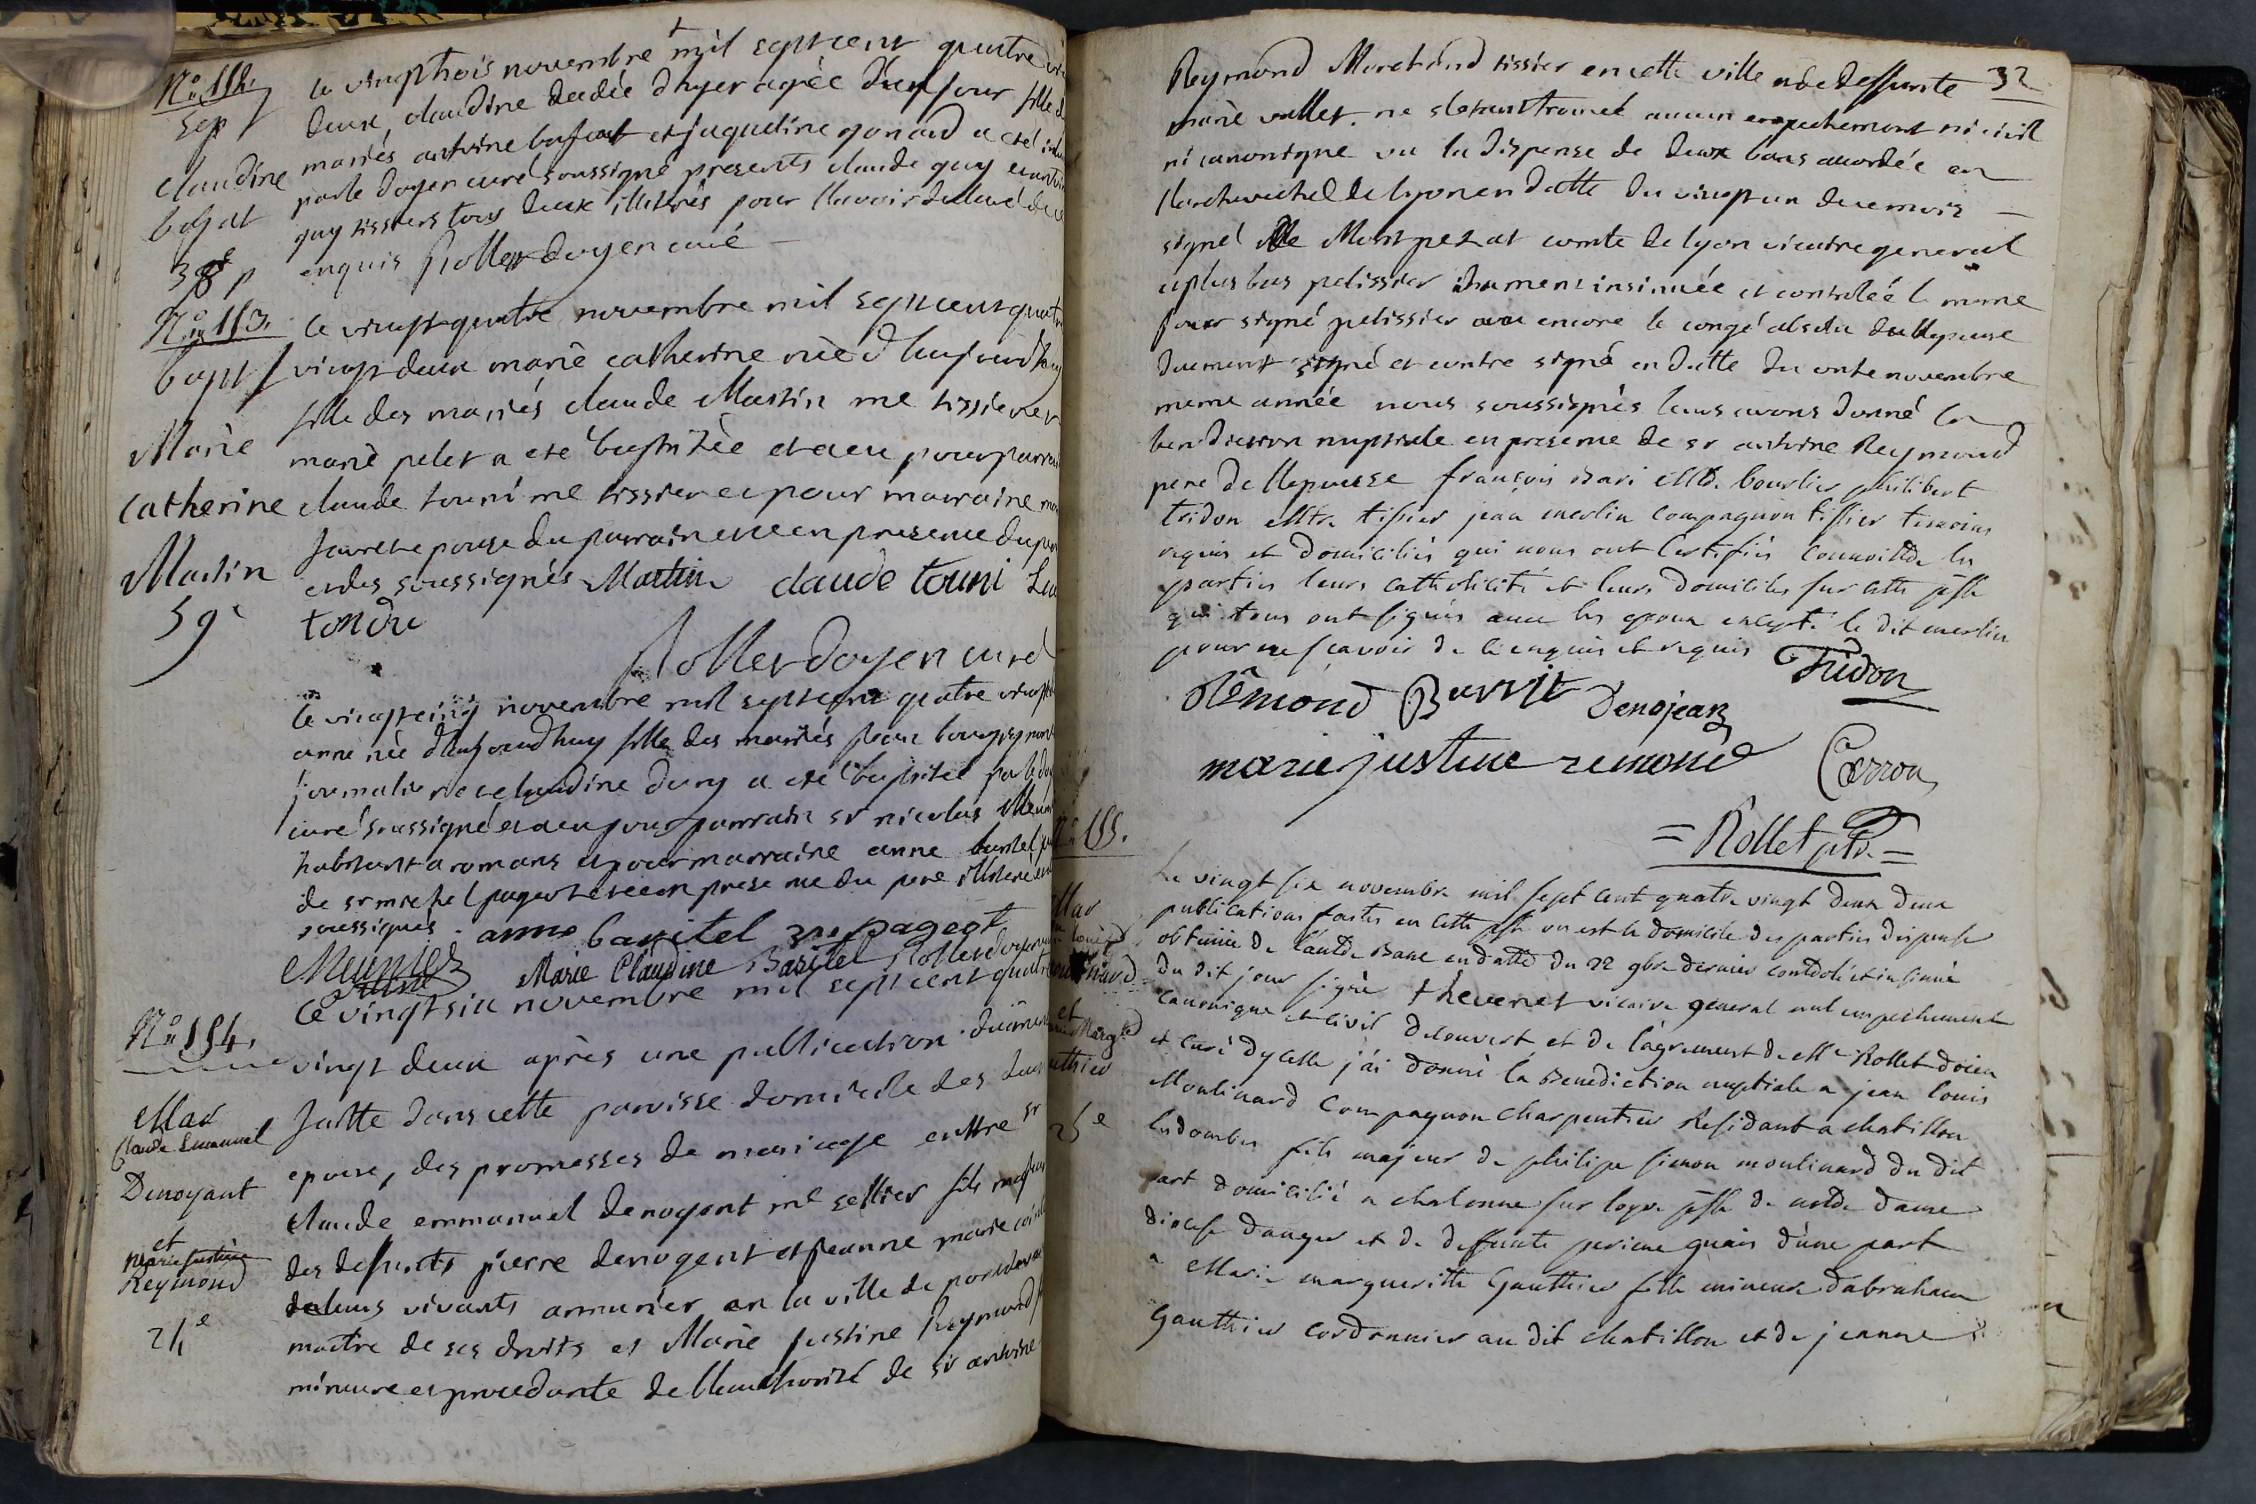 N° 152.
sep
claudine
bajat
38e p
le vingt trois novembre mil sept cent quatre
deux, claudine decedée d'hyer agée d'un jour fille de
mariés antoine bajat et jaqueline gonard a eté
par le doyen curé soussigné presents claude guy
guy tissiers tous deux illiterés pour l'avoir declaré de ce
enquis Rollet doyen curé
N° 153.
bapt
Marie
Catherine
Martin
59e
le vingt quatre novembre mil sept cent quatre
vingt deux marie catherine née d'aujourd'huy
fille des mariés claude Martin me tissier et
marie pelet a eté baptisée et a eu pour parrain
claude touni me tissier et pour marraine
epouse du parrain et ce en presence du pere
et des soussignés Martin claude touni
tondu
Rollet doyen curé
le vingt cinq novembre mil sept cent quatre vingt
anne née d'aujourd'huy fille des mariés jean
journalier et claudine dury a eté baptisée par le doyen
curé soussigné et a eu pour parrain sr nicolas Meunier
habitant a romans et pour marraine anne baritel
de sr michel pageot et ce en presence du pere illiteré
soussignés. anne baritel pageot
Meunier Marie Claudine Baritel Rollet doyen curé
N° 154.
Mar
Claude Emanuel
Denoyant
et
marie justine
Reymond
24e
Ce vingt six novembre mil sept cent quatre
vingt deux après une publication duëment
faitte dans cette paroisse domicile des deux
epoux, des promesses de mariage entre sr
claude emmanuel denogent me sellier fils majeur
des deffunts pierre denogent et jeanne marie
de leurs vivants armurier en la ville de
maitre de ses droits et Marie justine Reymond
mineure et procedante de l'authorité de sr antoine
32
Reymond Marchand tissier en cette ville et de deffunte
marie vallet. ne s'etant trouvé aucun empechement ni civil
ni canonique vu la dispense de deux bans accordée en
l'archeveché de lyon en datte du vingt un de ce mois
signé De Montpezat comte de lyon vicaire general
et plus bas pelissier duement insinuée et controlée le meme
jour signé pelissier vu encore le congé absolu de l'epoux
duement signé et contre signé en datte du onze novembre
meme année nous soussignés leurs avons donné la
benediction nuptiale en presence de sr antoine Reymond
pere de l'epouse françois Bari Mtre bourlier philibert
tridon Mtre tissier jean merlin compagnon tissier temoins
requis et domiciliés qui nous ont certifiés connoitre les
parties leurs catholicité et leurs domiciles sur cette psse
qui tous ont signés avec les epoux excepté le dit merlin
pour ne sçavoir de ce enquis et requis Tridon
Rêmond Barrit Denojean
marie justine remond Carron
= Rollet ptre. =
N° 155.
Mar
jean louis
moulinard
et
marie Marg te
gauthier
25e
Le vingt six novembre mil sept cent quatre vingt deux deux
publications faites en cette psse ou est le domicile des parties dispense
obtenüe de l'autre Banc en datte du 22 9bre dernier controlé et insinué
du dit jour signé thevenet vicaire general nul empechement
canonique et civil decouvert et de l'agrement de Mr Rollet doien
et curé dycelle j'ai donné la Benediction nuptiale a jean louis
Moulinard compagnon charpentier Residant a chatillon
les dombes fils majeur de philipe simon moulinard du dit
part domicilié a chalonne sur loyre psse de notre dame
diocese d'anger et de deffunte perinne d'une part
a Marie marguerite Gauthier fille mineure d'abraham
Gauthier cordonnier au dit chatillon et de jeanne